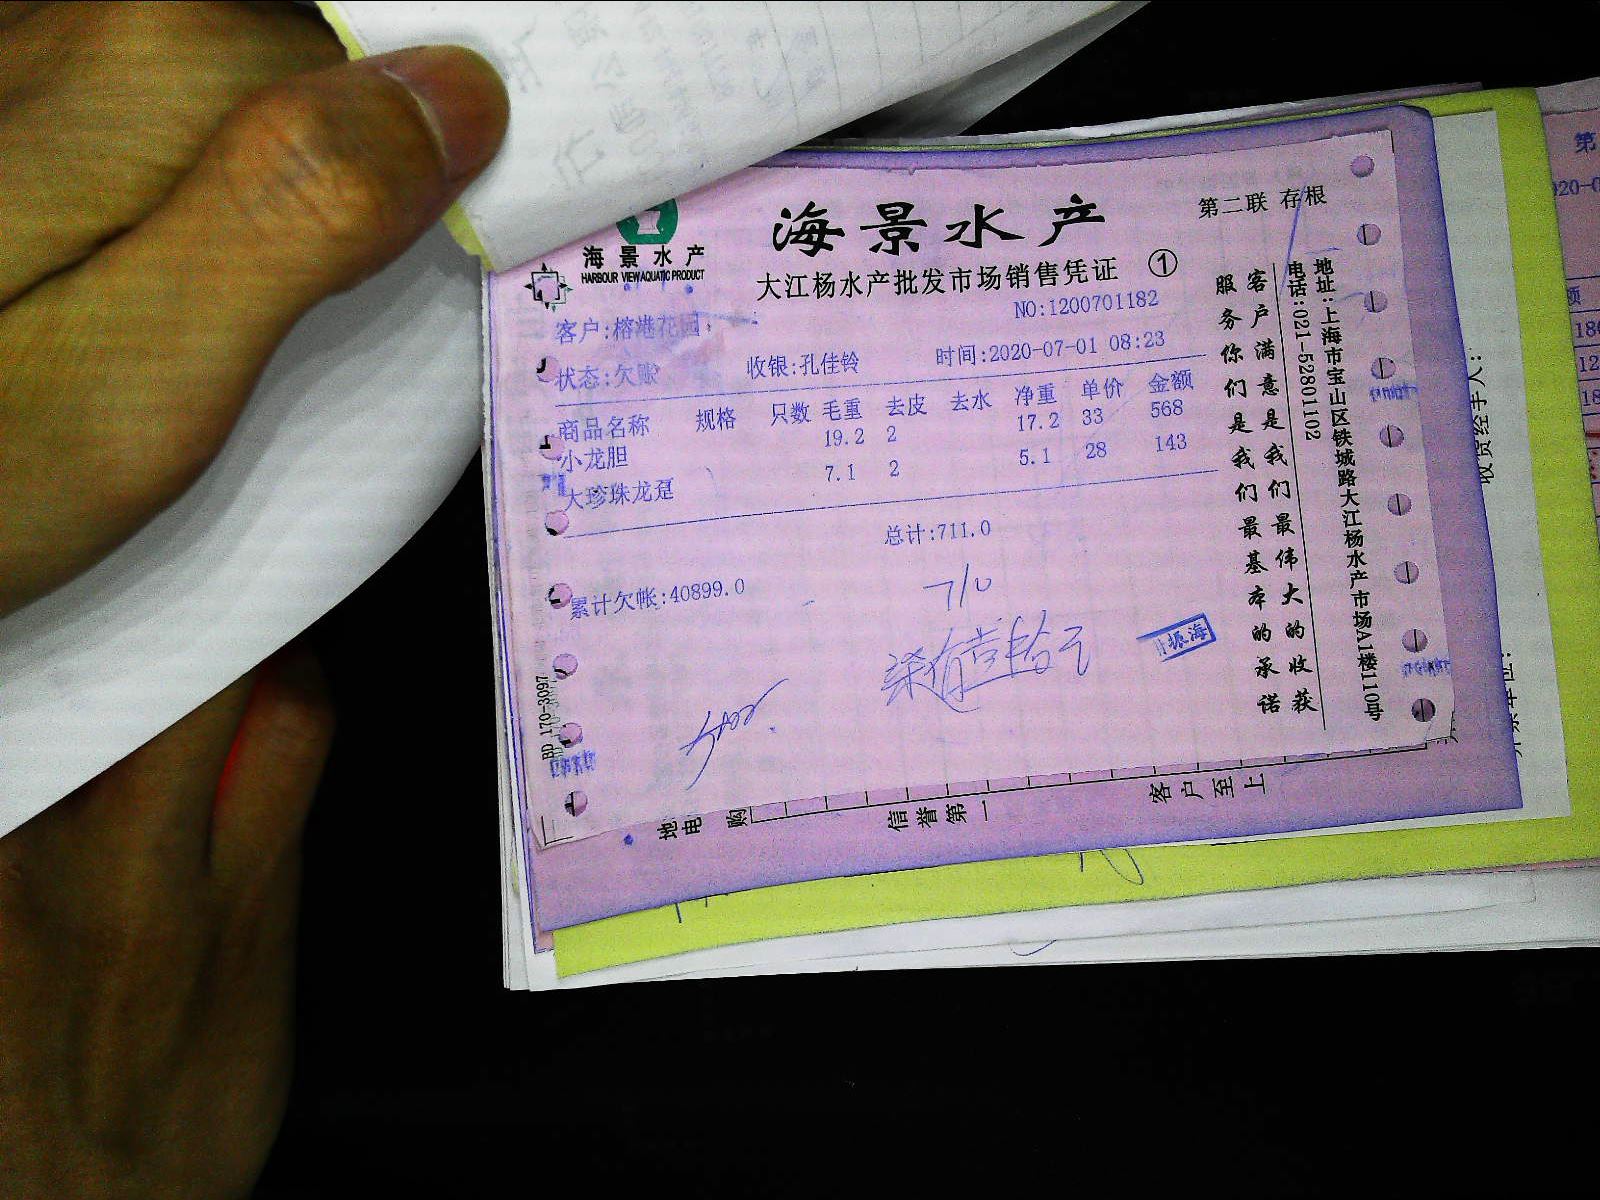 第二联 存根
海景水产
海景水产
HARBOUR VIEW AQUATIC PRODUCT
大江杨水产批发市场销售凭证 ①
NO:1200701182
客户:榕港花园
状态:欠账 收银:孔佳铃 时间:2020-07-01 08:23
商品名称 规格 只数 毛重 去皮 去水 净重 单价 金额
小龙胆 19.2 2 17.2 33 568
大珍珠龙趸 7.1 2 5.1 28 143
总计:711.0
累计欠帐:40899.0
710
柒佰壹拾元
振海
客户满意是我们最伟大的收获
服务你们是我们最基本的承诺
地址:上海市宝山区铁城路大江杨水产市场A1楼110号
电话:021-52801102
BD 170-3097
地
电
购
信誉第一
客户至上
收货经手人:
第
额